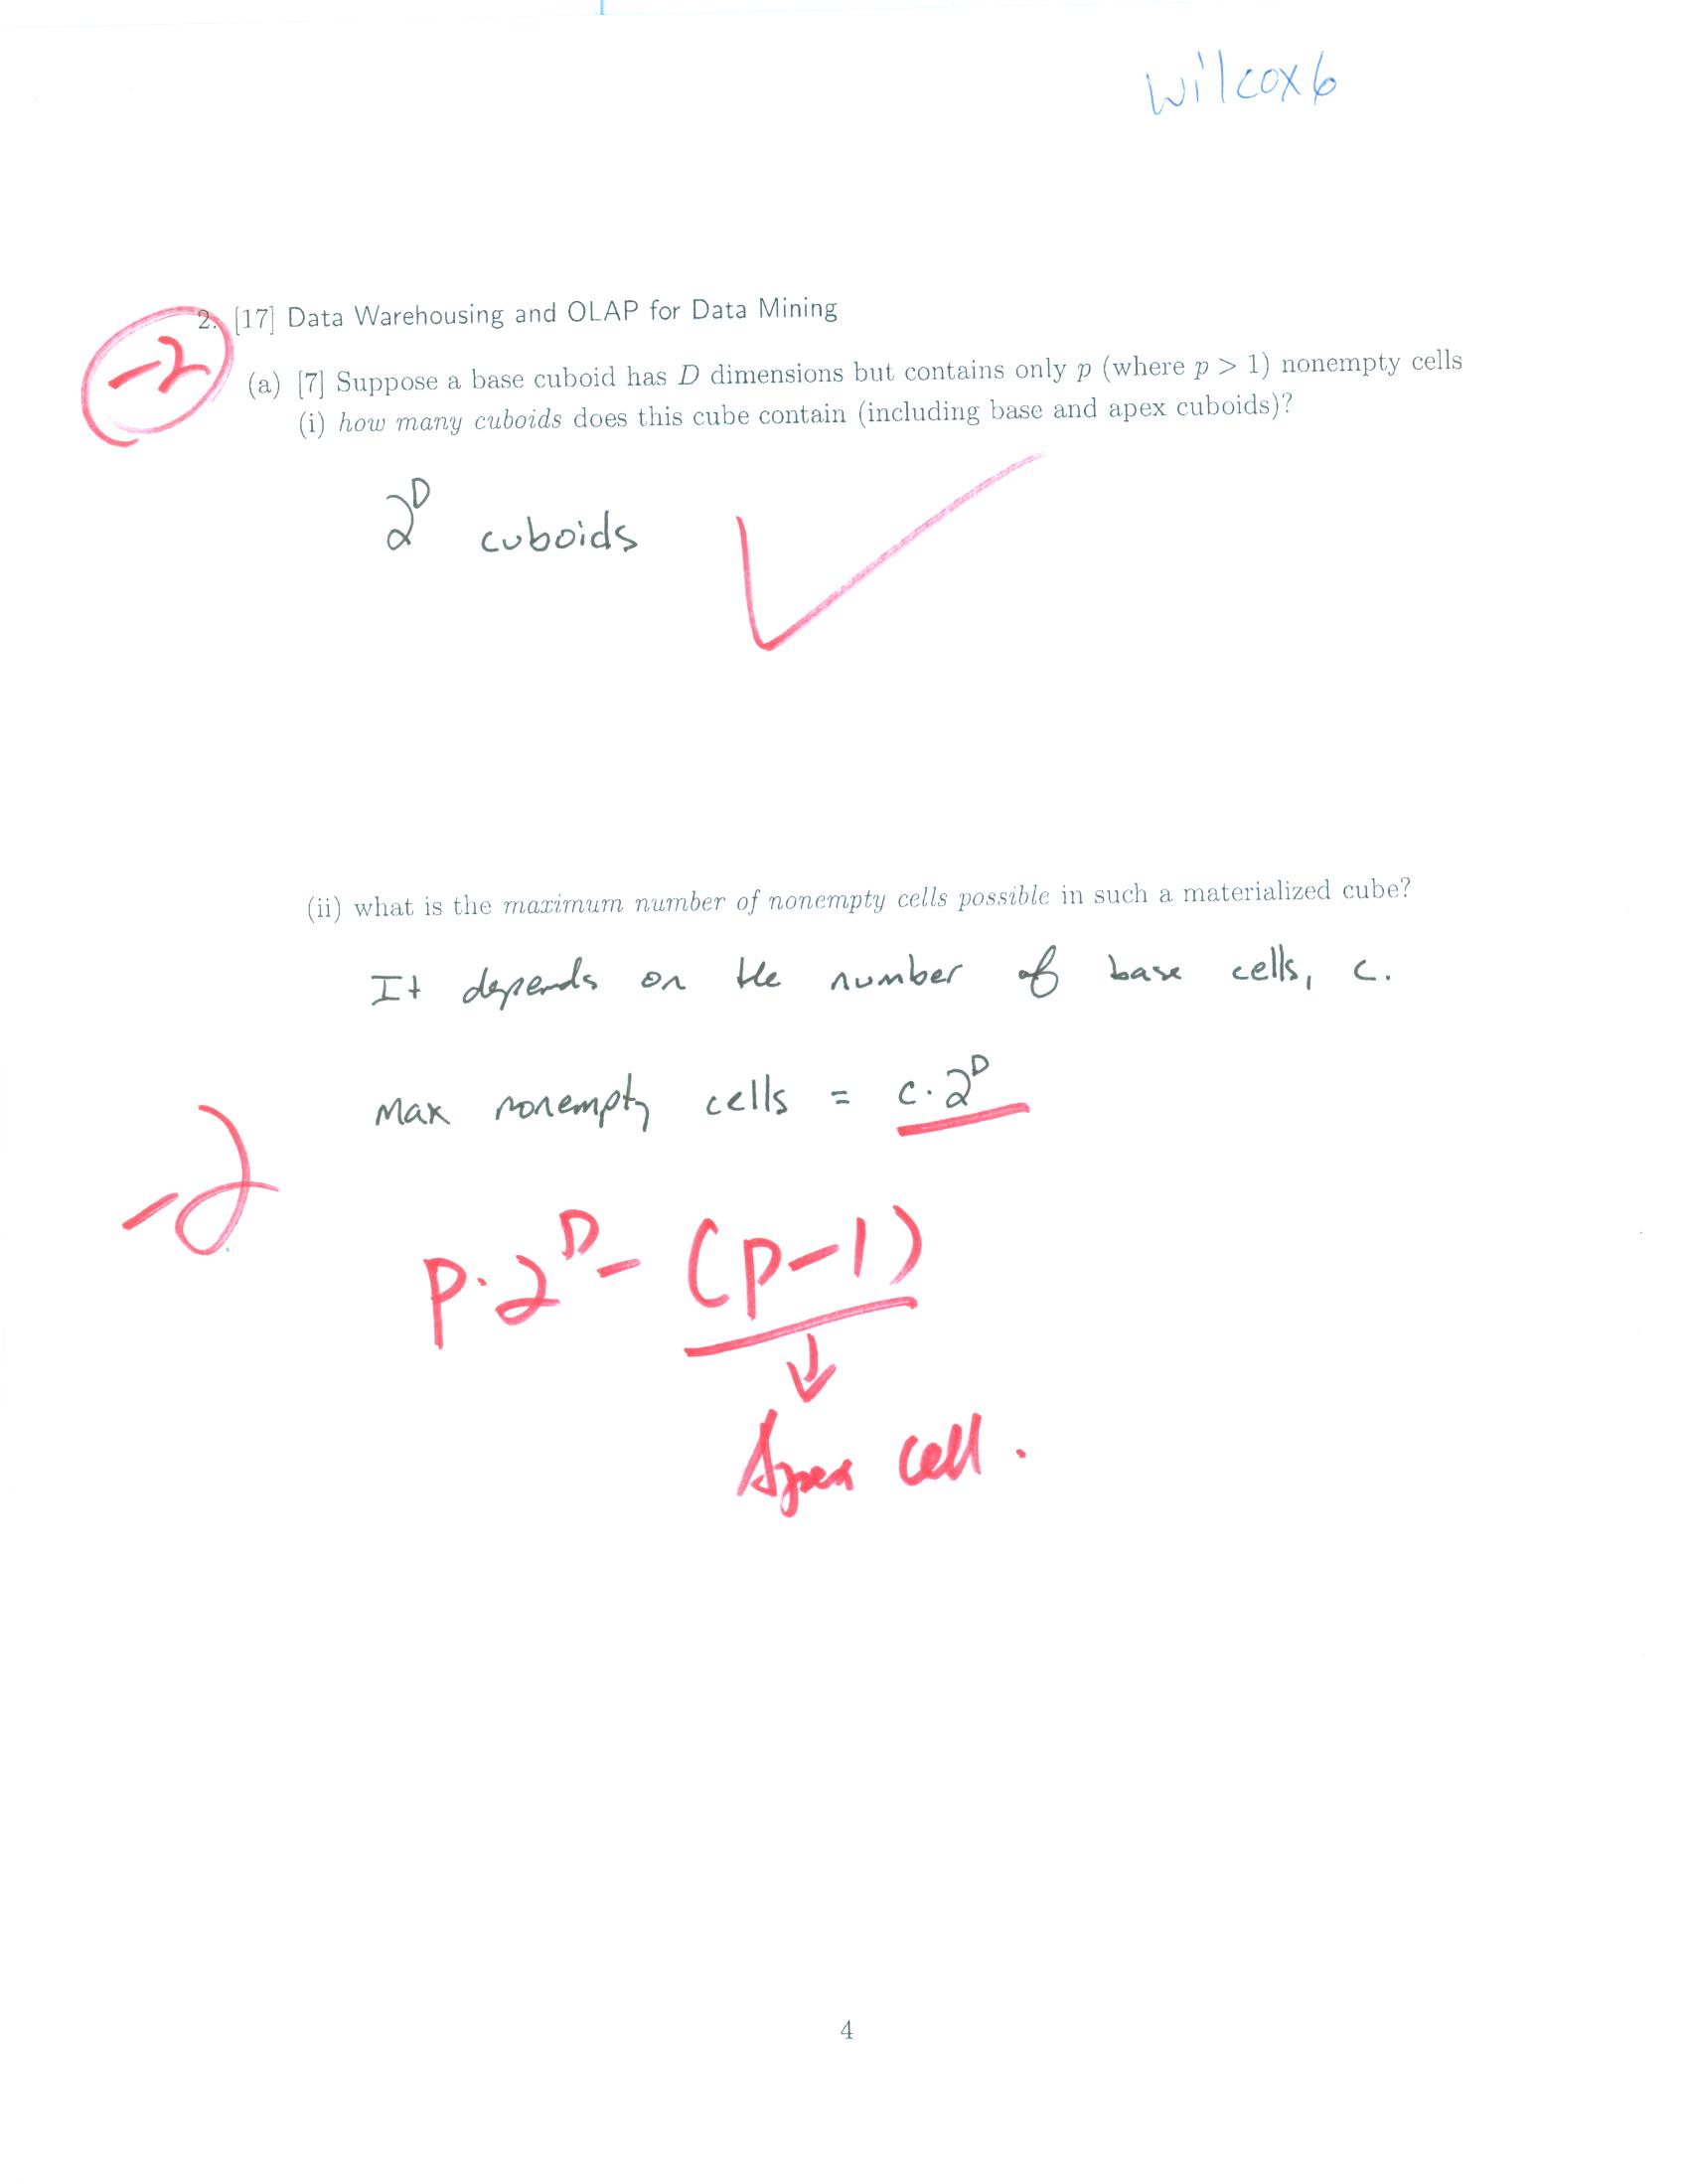 wilcox6
2. [17] Data Warehousing and OLAP for Data Mining
-2
(a) [7] Suppose a base cuboid has D dimensions but contains only p (where p > 1) nonempty cells
(i) how many cuboids does this cube contain (including base and apex cuboids)?
2^D cuboids
(ii) what is the maximum number of nonempty cells possible in such a materialized cube?
It depends on the number of base cells, c.
max nonempty cells = c·2^D
-2
p·2^D - (p-1)
Apex cell.
4